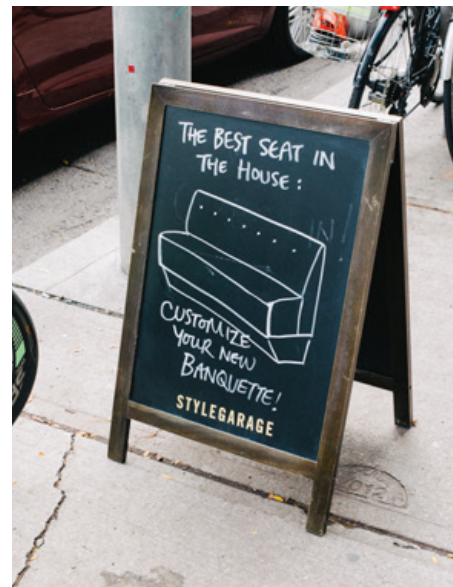 THE BEST SEAT IN
THE HOUSE:
CUSTOMIZE
YOUR NEW
BANQUETTE!
STYLEGARAGE